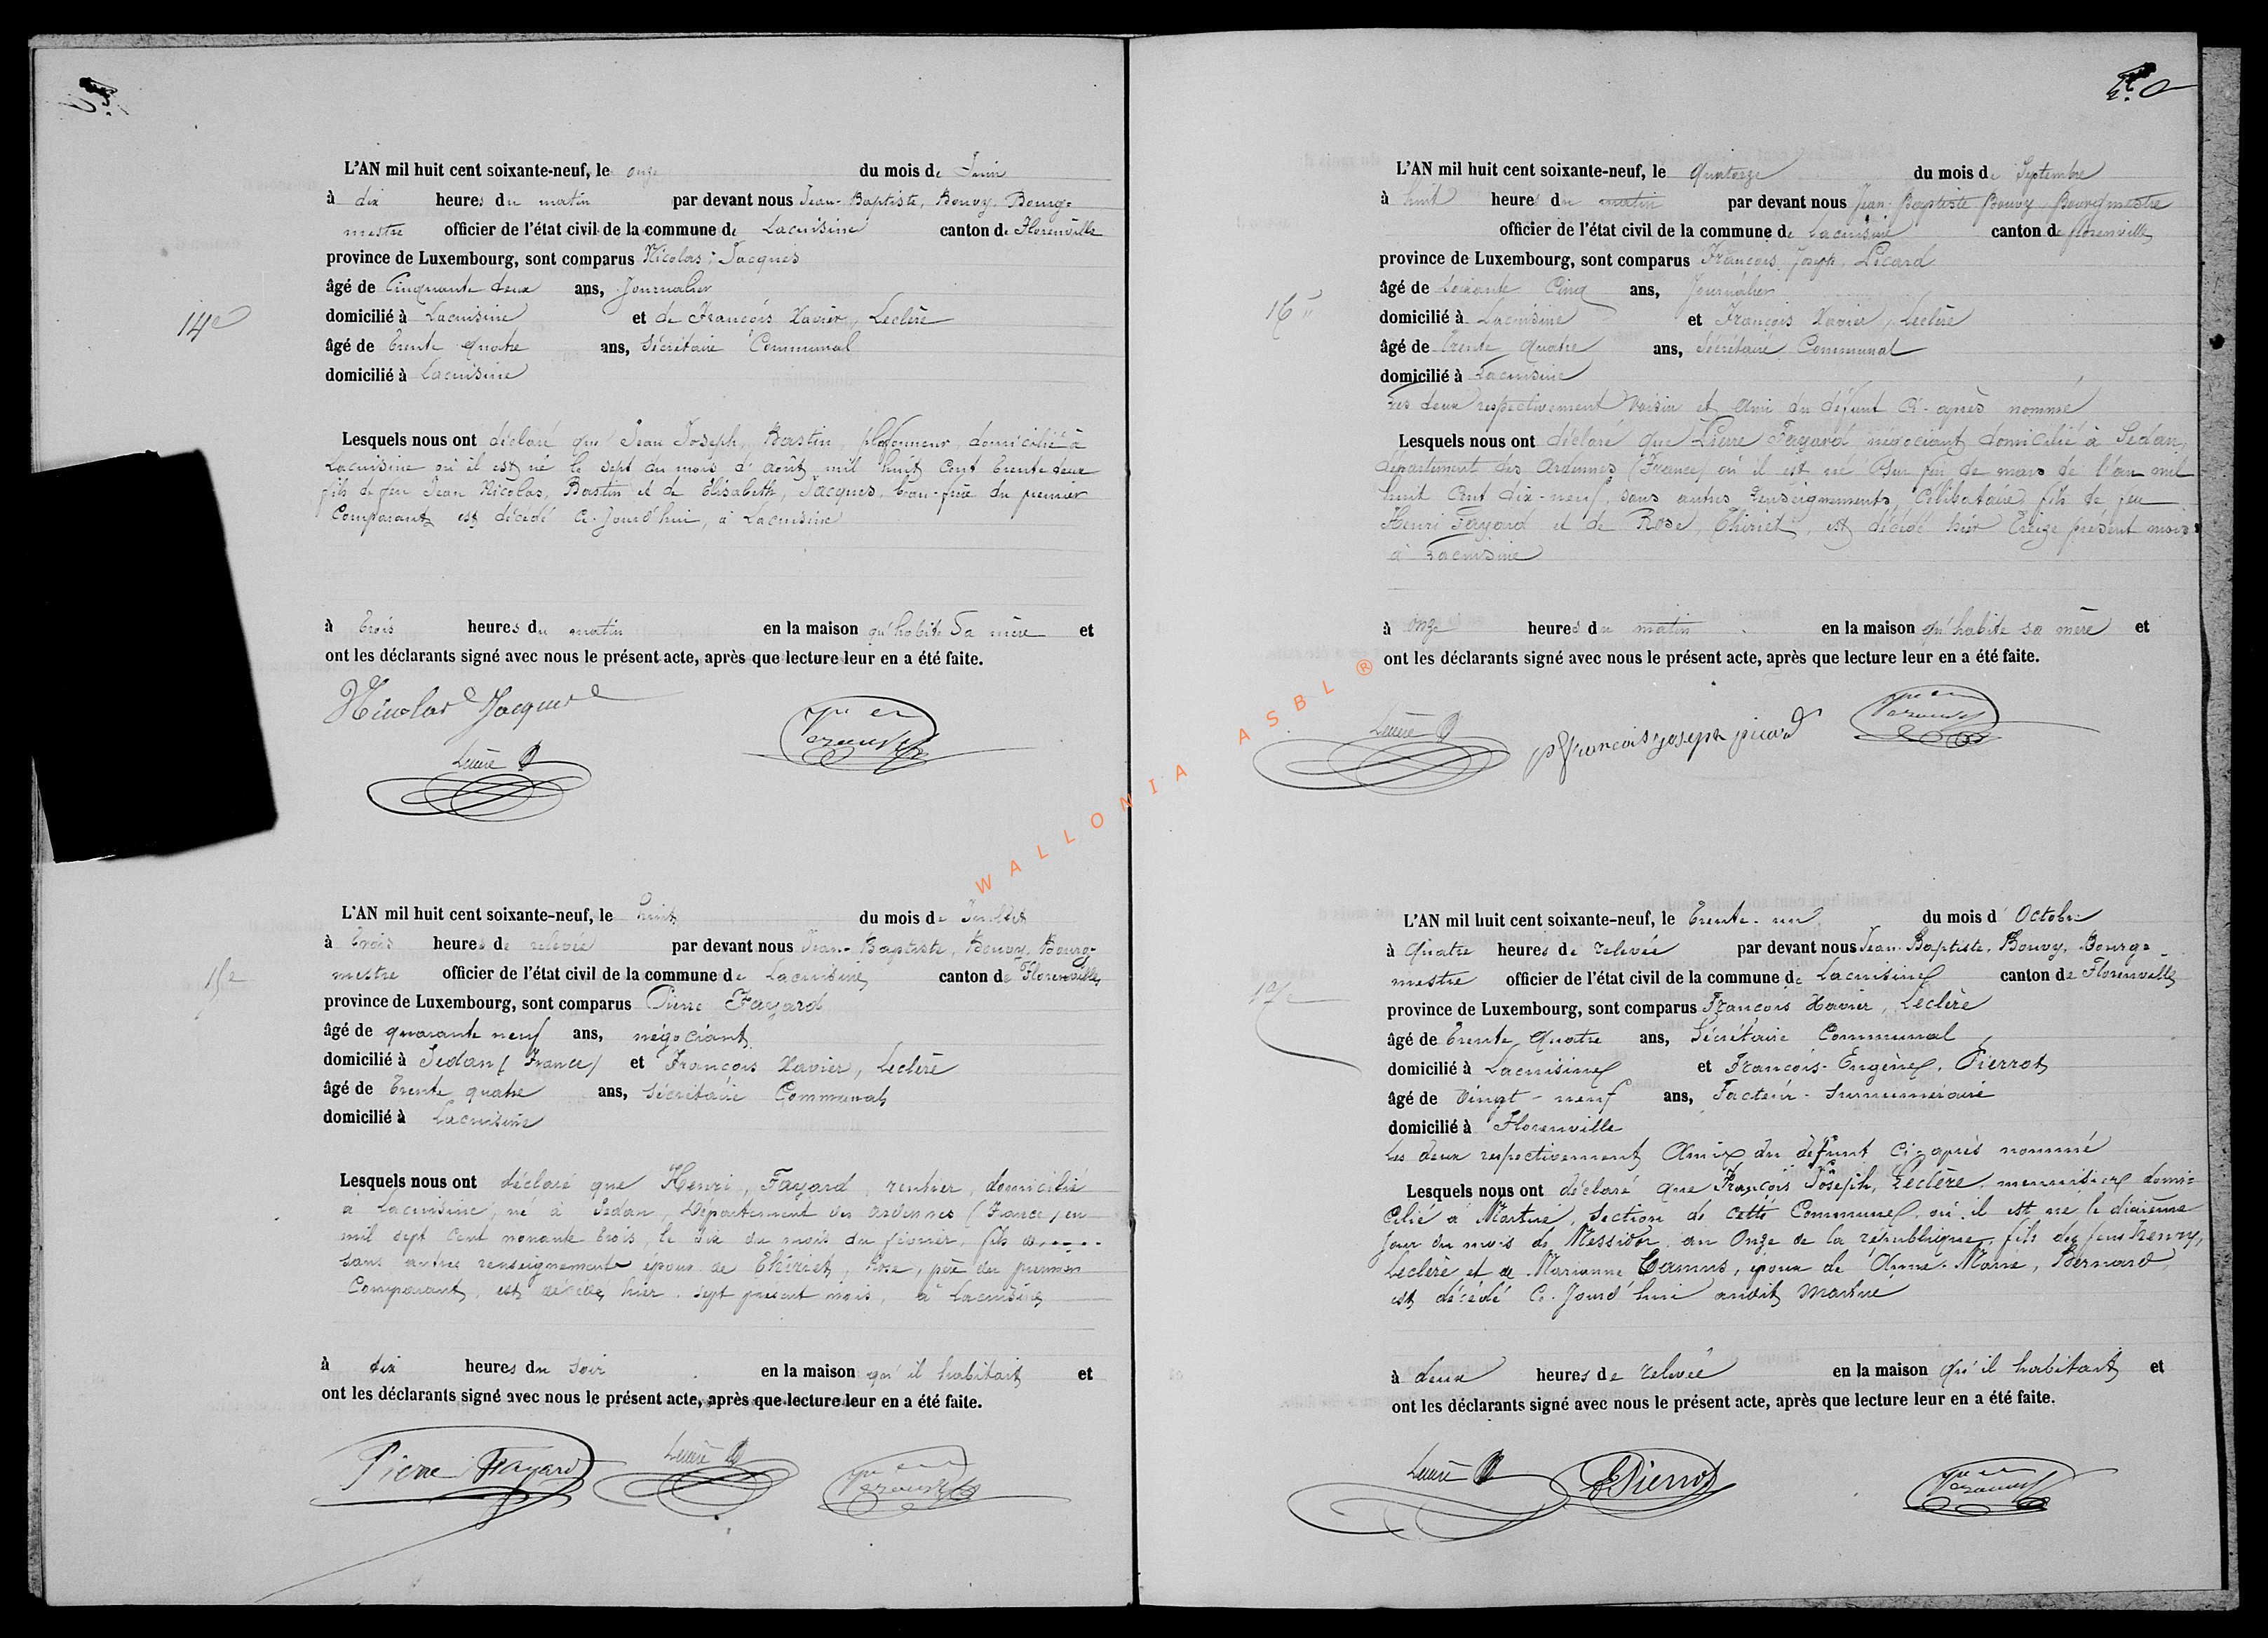 L'AN mil huit cent soixante-neuf, le onze du mois de Juin
à dix heures du matin par devant nous Jean-Baptiste, Bouvy, Bourg=
mestre officier de l'état civil de la commune de Lacuisine canton de Florenville
province de Luxembourg, sont comparus Nicolas, Jacques
âgé de Cinquante deux ans, Journalier
14e
domicilié à Lacuisine et de François Xavier, Leclère
âgé de trente quatre ans, Sécrétaire Communal
domicilié à Lacuisine
Lesquels nous ont déclaré que Jean Joseph, Bastin, plafonneur, domicilié à
Lacuisine où il est né le sept du mois d'août mil huit cent trente deux
fils de feu Jean Nicolas, Bastin et de Elisabeth, Jacques, beau-frère du premier
Comparant, est décédé ce-jourd'hui, à Lacuisine
à trois heures du matin en la maison qu'habite Sa mère et
ont les déclarants signé avec nous le présent acte, après que lecture leur en a été faite.
Nicolas Jacques
Leclère
L'AN mil huit cent soixante-neuf, le huit du mois de Juillet
à trois heures de relevée par devant nous Jean-Baptiste, Bouvy, Bourg=
15e
mestre officier de l'état civil de la commune de Lacuisine canton de Florenville
province de Luxembourg, sont comparus Pierre Fayard
âgé de quarante neuf ans, négociant
domicilié à Sedan (France) et François Xavier, Leclère
âgé de trente quatre ans, sécrétaire Communal
domicilié à Lacuisine
Lesquels nous ont déclaré que Henri, Fayard, rentier, domicilié
à Lacuisine, né à Sedan, Département des Ardennes (France) en
mil sept cent nonante trois, le dix du mois du février, fils d.....
sans autres renseignements époux de Thiriet, Rose, père du premier
Comparant, est décédé hier, sept présent mois, à Lacuisine
à dix heures du soir en la maison qu'il habitait et
ont les déclarants signé avec nous le présent acte, après que lecture leur en a été faite.
Pierre Fayard
Leclère
WALLONIA ASBL ®
L'AN mil huit cent soixante-neuf, le Quatorze du mois de Septembre
à huit heures du matin par devant nous Jean Baptiste Bouvy Bourgmestre
officier de l'état civil de la commune de Lacuisine canton de florenville
province de Luxembourg, sont comparus François Joseph, Picard
âgé de Soixante Cinq ans, Journalier
16e
domicilié à Lacuisine et François Xavier, Leclère
âgé de trente Quatre ans, Sécrétaire Communal
domicilié à Lacuisine
Les deux respectivement voisin et ami du défunt ci-après nommé
Lesquels nous ont déclaré que Pierre Fayard négociant domicilié à Sedan,
département des Ardennes (France) où il est né de mars de l'an mil
huit cent dix-neuf, sans autres renseignements, Célibataire, fils de feu
Henri Fayard et de Rose, Thiriet, est décédé hier treize présent mois
à Lacuisine
à onze heures du matin en la maison qu'habite sa mère et
ont les déclarants signé avec nous le présent acte, après que lecture leur en a été faite.
Leclère
françois joseph picard
L'AN mil huit cent soixante-neuf, le trente-un du mois d'Octobre
à Quatre heures de relevée par devant nous Jean-Baptiste, Bouvy, Bourg=
17e
mestre officier de l'état civil de la commune de Lacuisine canton de Florenville
province de Luxembourg, sont comparus François Xavier, Leclère
âgé de trente Quatre ans, Sécrétaire Communal
domicilié à Lacuisine et François-Eugène, Pierrot
âgé de vingt-neuf ans, Facteur-surnuméraire
domicilié à Florenville
Les deux respectivement Amis du défunt ci-après nommé
Lesquels nous ont déclaré que François Joseph, Leclère, menuisier domi=
cilié à Martué, section de cette Commune, où il est né le dixième
jour du mois de Messidor, an Onze de la république, fils des feus Henry,
Leclère et de Marianne Camus, époux de Anne-Marie, Bernard,
est décédé ce-jourd'hui audit Martué
à deux heures de relevée en la maison qu'il habitait et
ont les déclarants signé avec nous le présent acte, après que lecture leur en a été faite.
Leclère
Pierrot